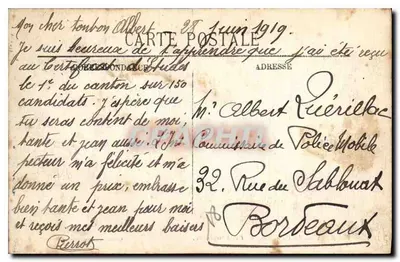 Mon cher tonton Albert 28 Juin 1919.
CARTE POSTALE
Je suis heureux de t'apprendre que j'ai été reçu
au Certificat d'Etudes
CORRESPONDANCE
ADRESSE
le 1er du canton sur 150
candidats. J'espère que
tu seras content de moi,
tante et jean aussi. L'Ins
pecteur m'a félicité et m'a
donné un prix, embrasse
bien tante et jean pour moi
et reçois mes meilleurs baisers
Pierrot
Mr Albert Quérillac
Commissaire de Police Mobile
32, Rue du Sablonat
Bordeaux